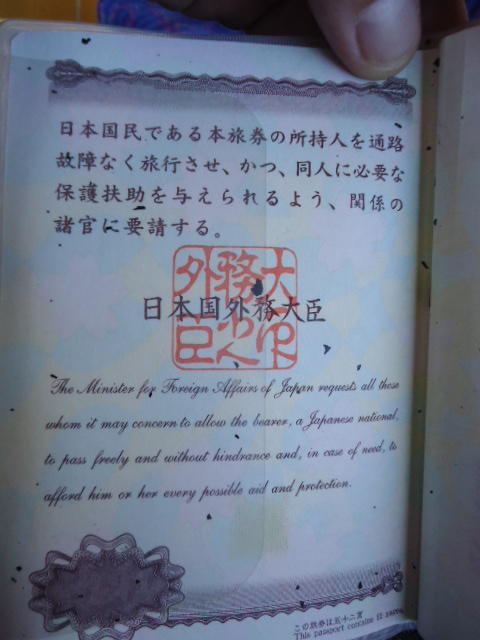 日本国民である本旅券の所持人を通路
故障なく旅行させ、かつ、同人に必要な
保護扶助を与えられるよう、関係の
諸官に要請する。
日本国外務大臣
The Minister for Foreign Affairs of Japan requests all those
whom it may concern to allow the bearer, a Japanese national,
to pass freely and without hindrance and, in case of need, to
afford him or her every possible aid and protection.
この旅券は五十二頁
This passport contains 52